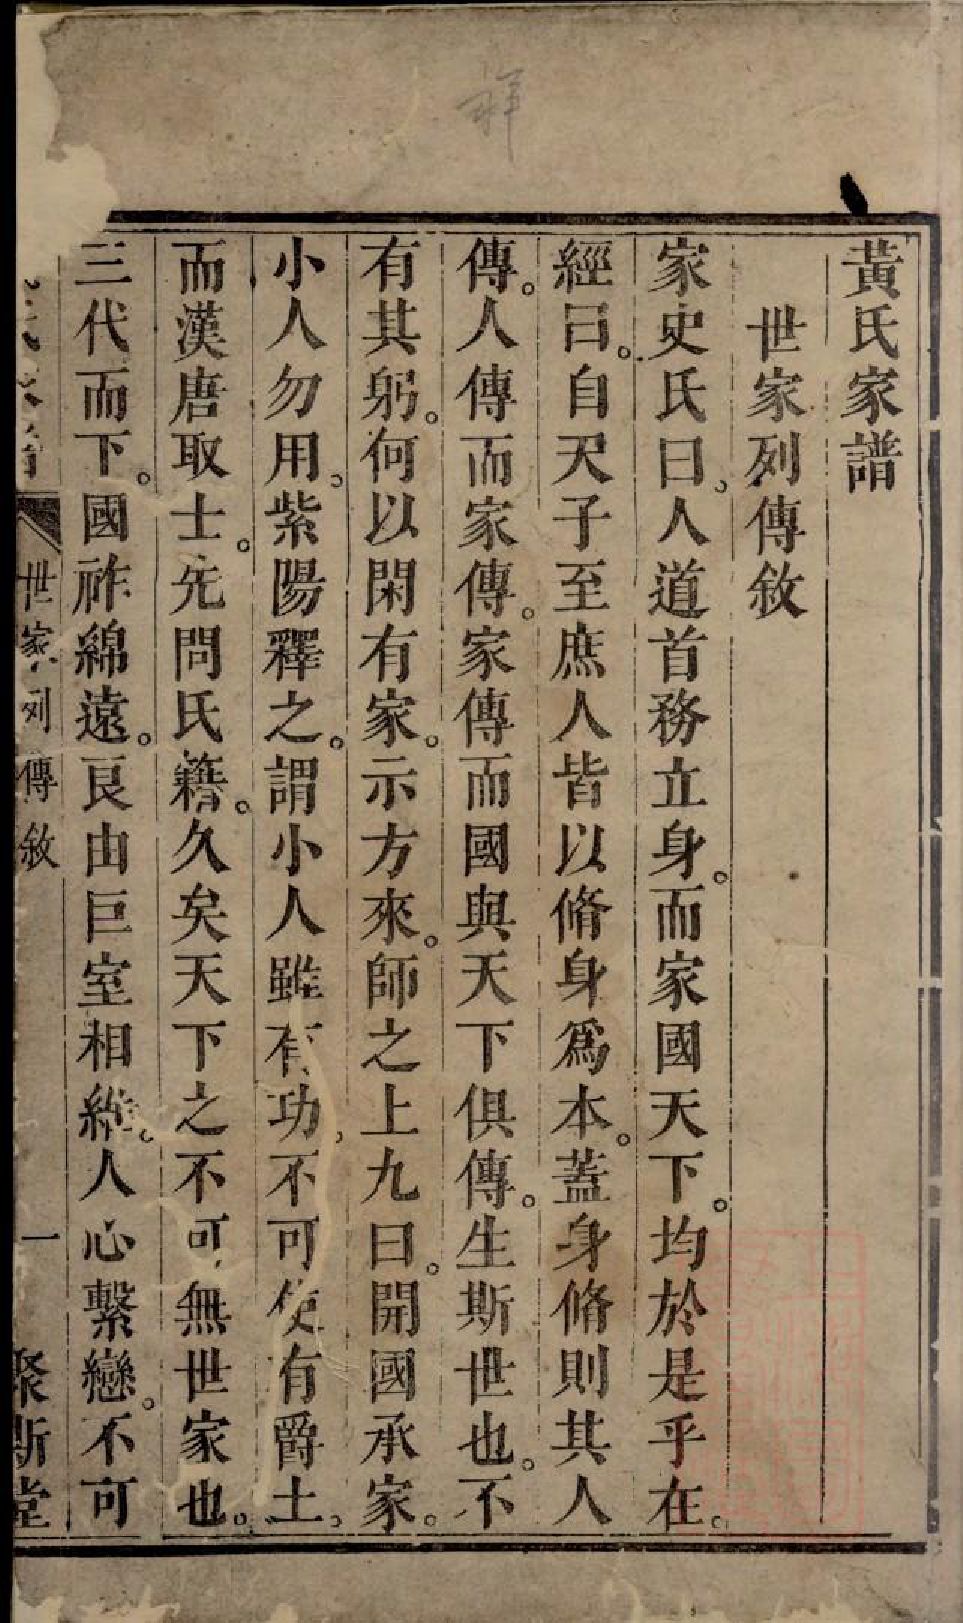 祥
黃氏家譜
世家列傳敘
家史氏曰。人道首務立身。而家國天下。均於是乎在。
經曰。自天子至庶人皆以脩身爲本。蓋身脩則其人
傳。人傳而家傳。家傳而國與天下俱傳。生斯世也。不
有其躬。何以閑有家。示方來。師之上九曰。開國承家。
小人勿用。紫陽釋之。謂小人雖有功。不可使有爵土。
而漢唐取士。先問氏籍。久矣天下之不可無世家也。
三代而下。國祚綿遠。良由巨室相維。人心繫戀。不可
世家列傳敘 一 聚斯堂